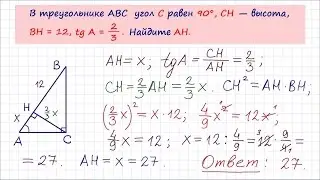 В треугольнике ABC угол C равен 90°, CH — высота,
BH = 12, tg A = 2/3. Найдите AH.
B
12
H
x
2/3 x
A
C
AH = x; tg A = CH/AH = 2/3;
CH = 2/3 AH = 2/3 x; CH² = AH · BH;
(2/3 x)² = x · 12; 4/9 x² = 12x;
4/9 x = 12; x = 12 : 4/9 = 12 · 9/4 =
= 27. AH = x = 27. Ответ: 27.